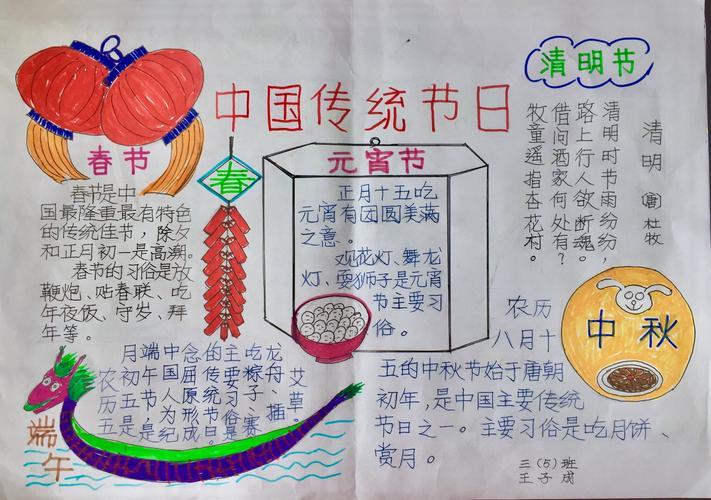 中国传统节日
春节
春节是中
国最隆重最有特色
的传统佳节，除夕
和正月初一是高潮。
春节的习俗是放
鞭炮、贴春联、吃
年夜饭、守岁、拜
年等。
春
元宵节
正月十五吃
元宵有团圆美满
之意。
观花灯、舞龙
灯、耍狮子是元宵
节主要习
俗。
清明节
清明 唐 杜牧
清明时节雨纷纷，
路上行人欲断魂。
借问酒家何处有？
牧童遥指杏花村。
中秋
农历
八月十
五的中秋节始于唐朝
初年，是中国主要传统
节日之一。主要习俗是吃月饼、
赏月。
端午
农历五
月初五是
端午节，是
中国人为纪
念屈原形成
的传统节日
主要习俗是
吃粽子、赛
龙舟、插
艾草。
三（5）班
王子成